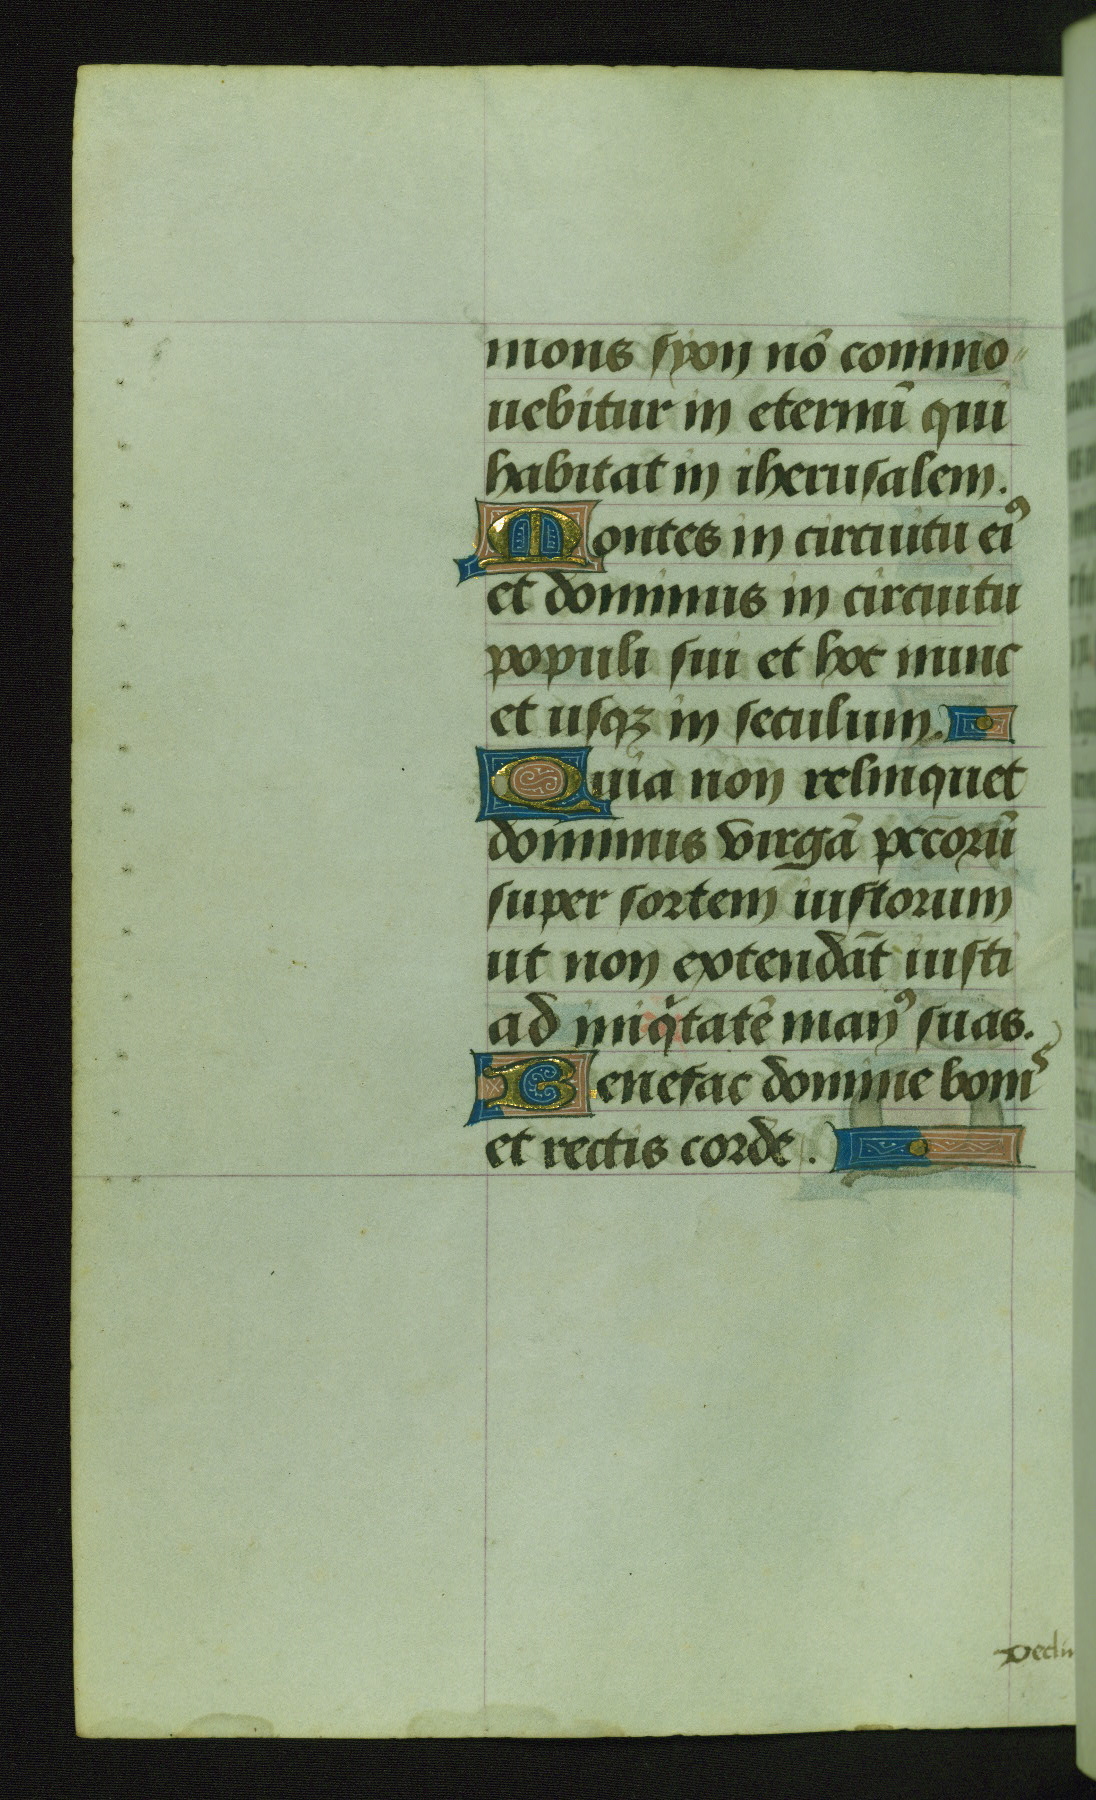 mons syon nō commo
uebitur in eternū qui
habitat in iherusalem.
Montes in circuitu eiꝰ
et dominus in circuitu
populi sui et hoc nunc
et usqꝫ in seculum.
Quia non relinquet
dominus virgā pccorū
super sortem iustorum
ut non extendāt iusti
ad iniqͥtatē manꝰ suas.
Benefac domine bonis
et rectis corde.